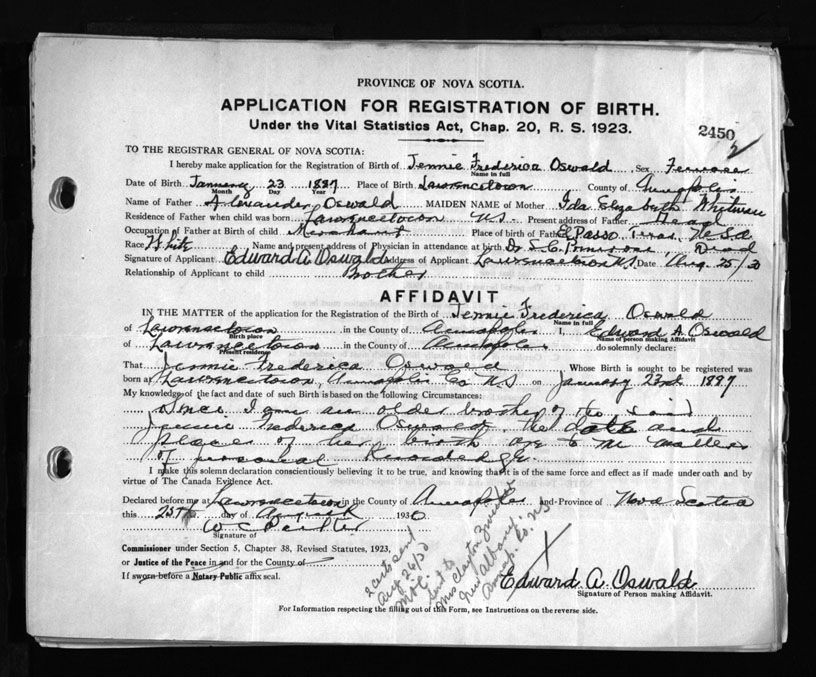 PROVINCE OF NOVA SCOTIA.
APPLICATION FOR REGISTRATION OF BIRTH.
Under the Vital Statistics Act, Chap. 20, R. S. 1923.
2450
2
TO THE REGISTRAR GENERAL OF NOVA SCOTIA:
I hereby make application for the Registration of Birth of Jennie Frederica Oswald Sex Female
Name in full
Date of Birth January 23 1887 Place of Birth Lawrencetown County of Annapolis
Month Day Year
Name of Father Alexander Oswald MAIDEN NAME of Mother Ida Elizabeth Whitman
Residence of Father when child was born Lawrencetown N.S. Present address of Father Dead
Occupation of Father at Birth of child Merchant Place of birth of Father El Passo, Texas, U.S.A
Race White Name and present address of Physician in attendance at birth Dr Primrose, Dead
Signature of Applicant Edward A. Oswald Address of Applicant Lawrencetown N.S Date Aug. 25/30
Relationship of Applicant to child Brother
AFFIDAVIT
IN THE MATTER of the application for the Registration of the Birth of Jennie Frederica Oswald
Name in full
of Lawrencetown in the County of Annapolis I, Edward A. Oswald
Birth place Name of person making Affidavit
of Lawrencetown in the County of Annapolis do solemnly declare:
Present residence
That Jennie Frederica Oswald Whose Birth is sought to be registered was
born at Lawrencetown, Annapolis Co NS on January 23rd 1887
My knowledge of the fact and date of such Birth is based on the following Circumstances:
Since I am an older brother of the said
Jennie Frederica Oswald, the date and
place of her birth are to me matters
of personal knowledge.
I make this solemn declaration conscientiously believing it to be true, and knowing that it is of the same force and effect as if made under oath and by
virtue of The Canada Evidence Act.
Declared before me at Lawrencetown in the County of Annapolis and Province of Nova Scotia
this 25th day of August 1930
W C
Signature of
Commissioner under Section 5, Chapter 38, Revised Statutes, 1923,
or Justice of the Peace in and for the County of
If sworn before a Notary Public affix seal.
2 certs sent
Aug 26/30
sent to
Mrs Clayton
New Albany
Annap. Co. NS
Edward A. Oswald
Signature of Person making Affidavit.
For Information respecting the filling out of this Form, see Instructions on the reverse side.